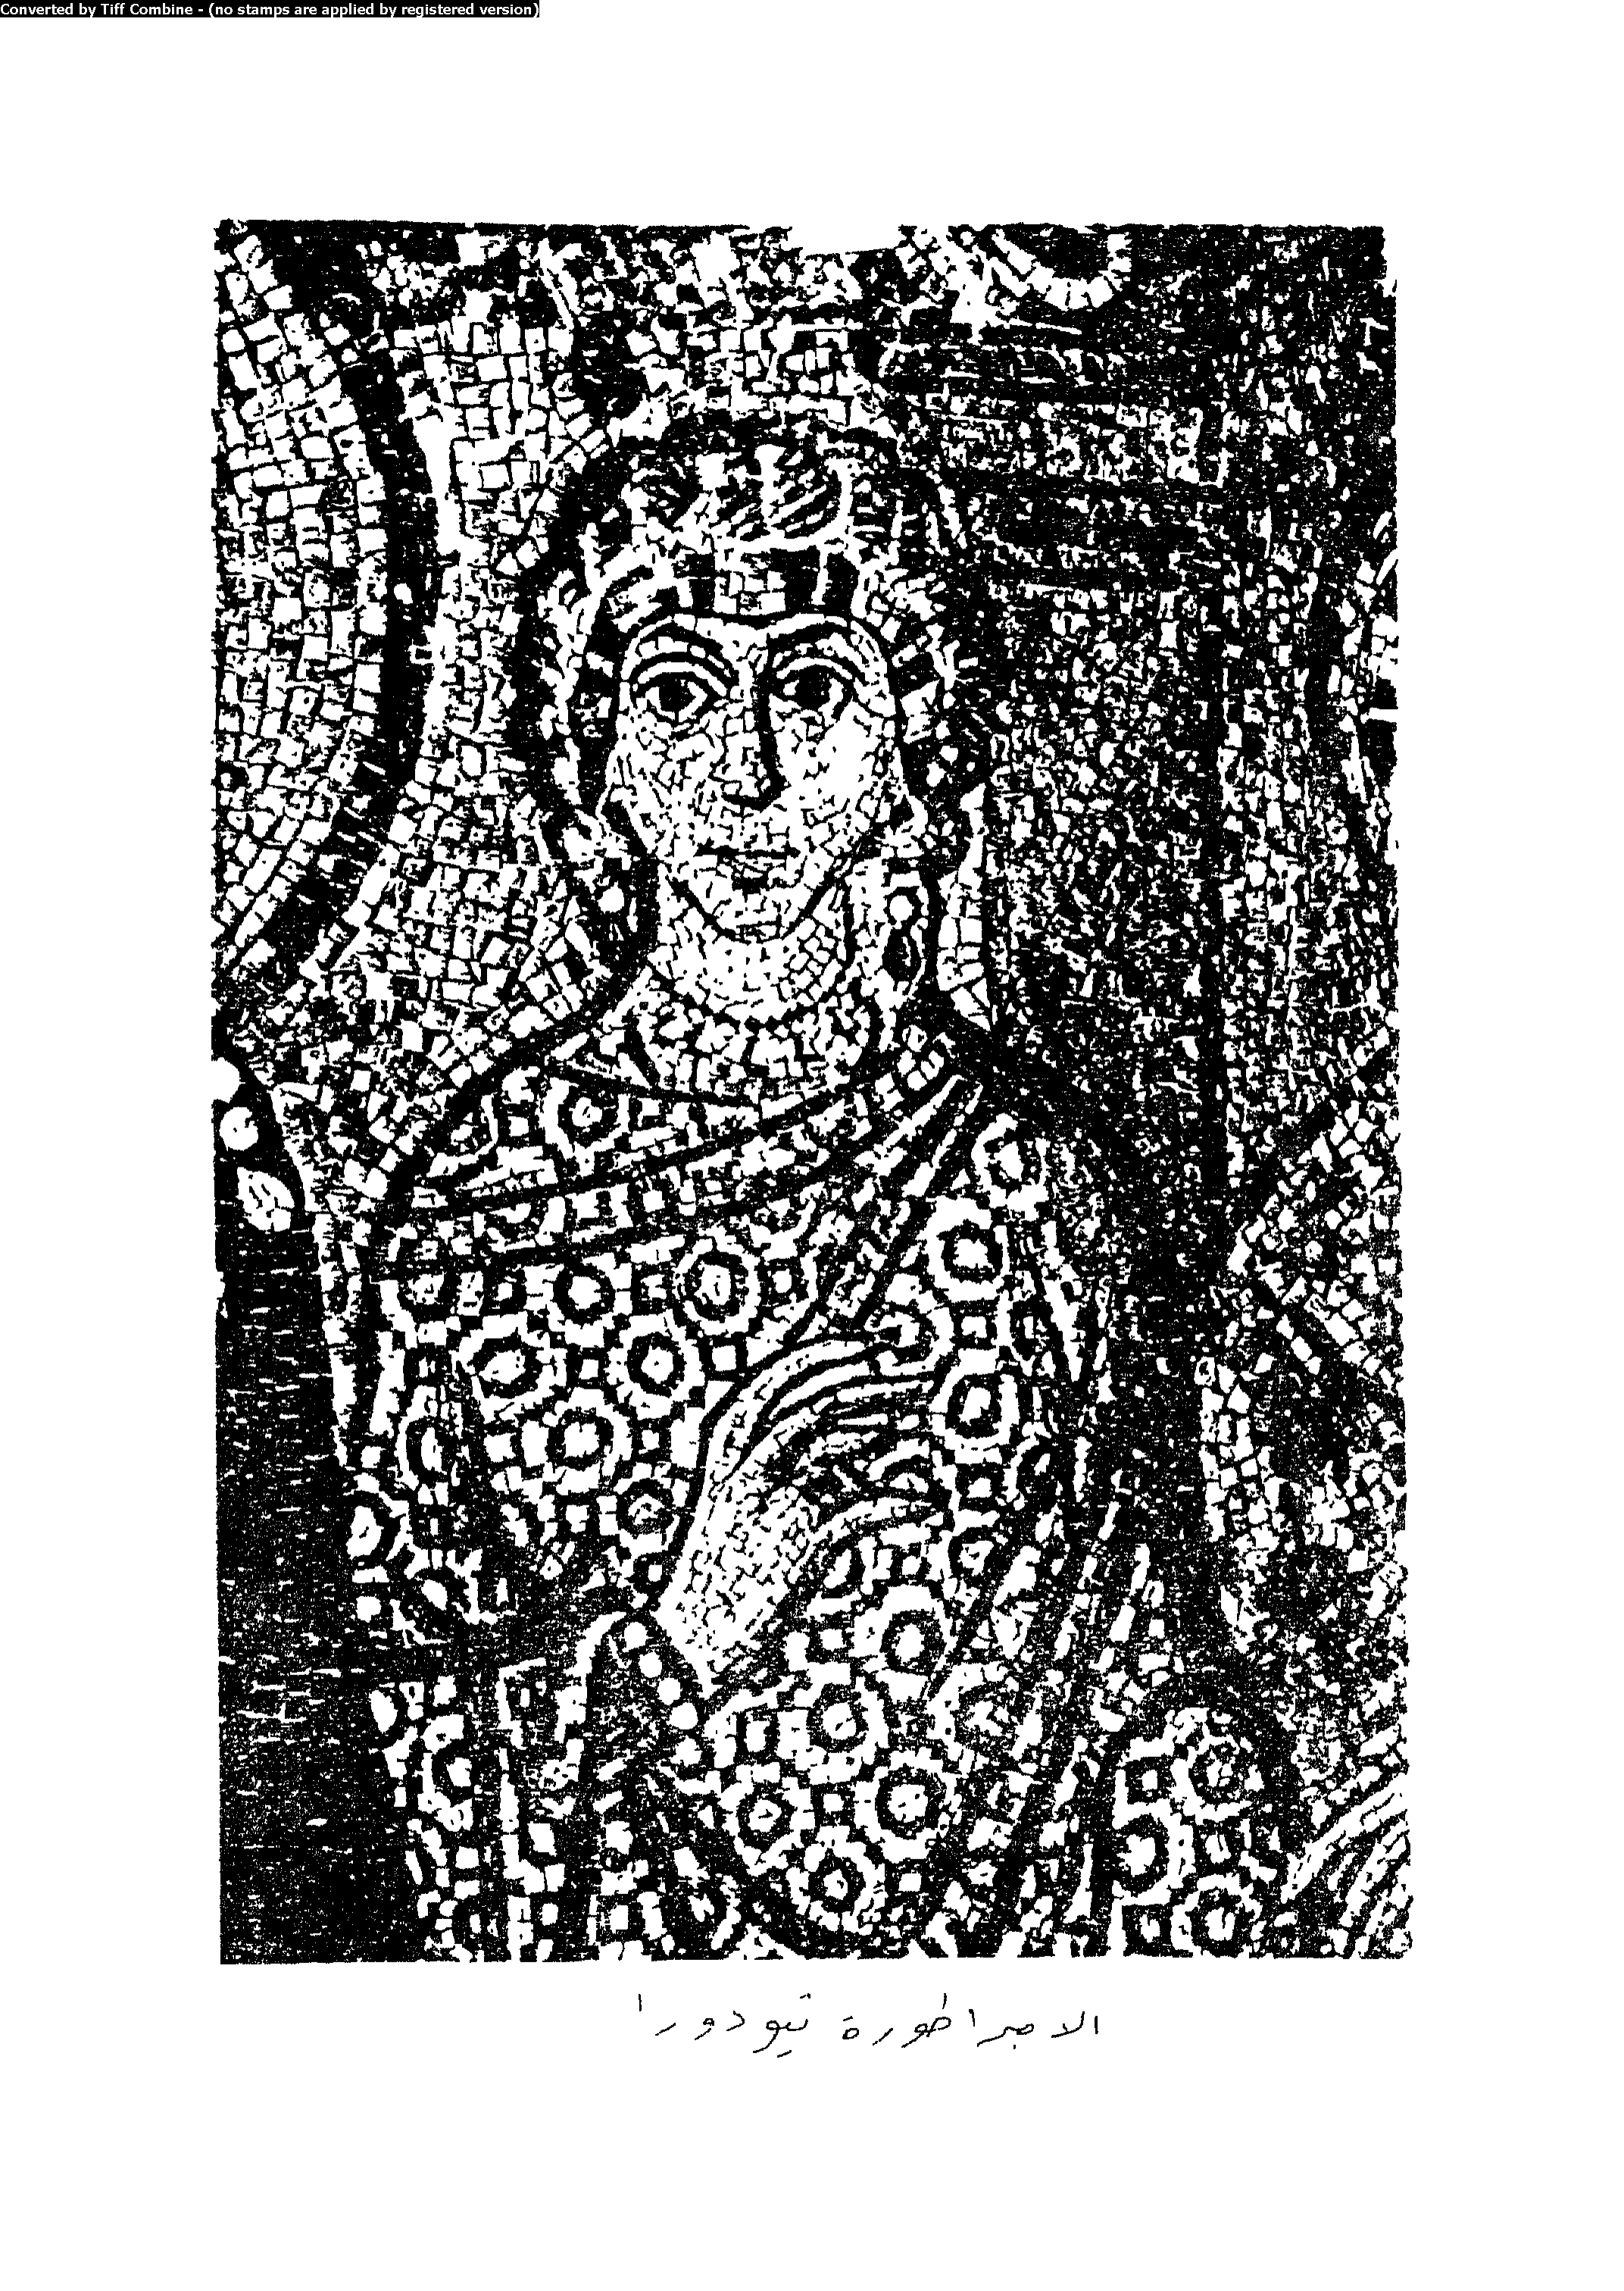 Converted by Tiff Combine - (no stamps are applied by registered version)
الامبراطورة تيودورا